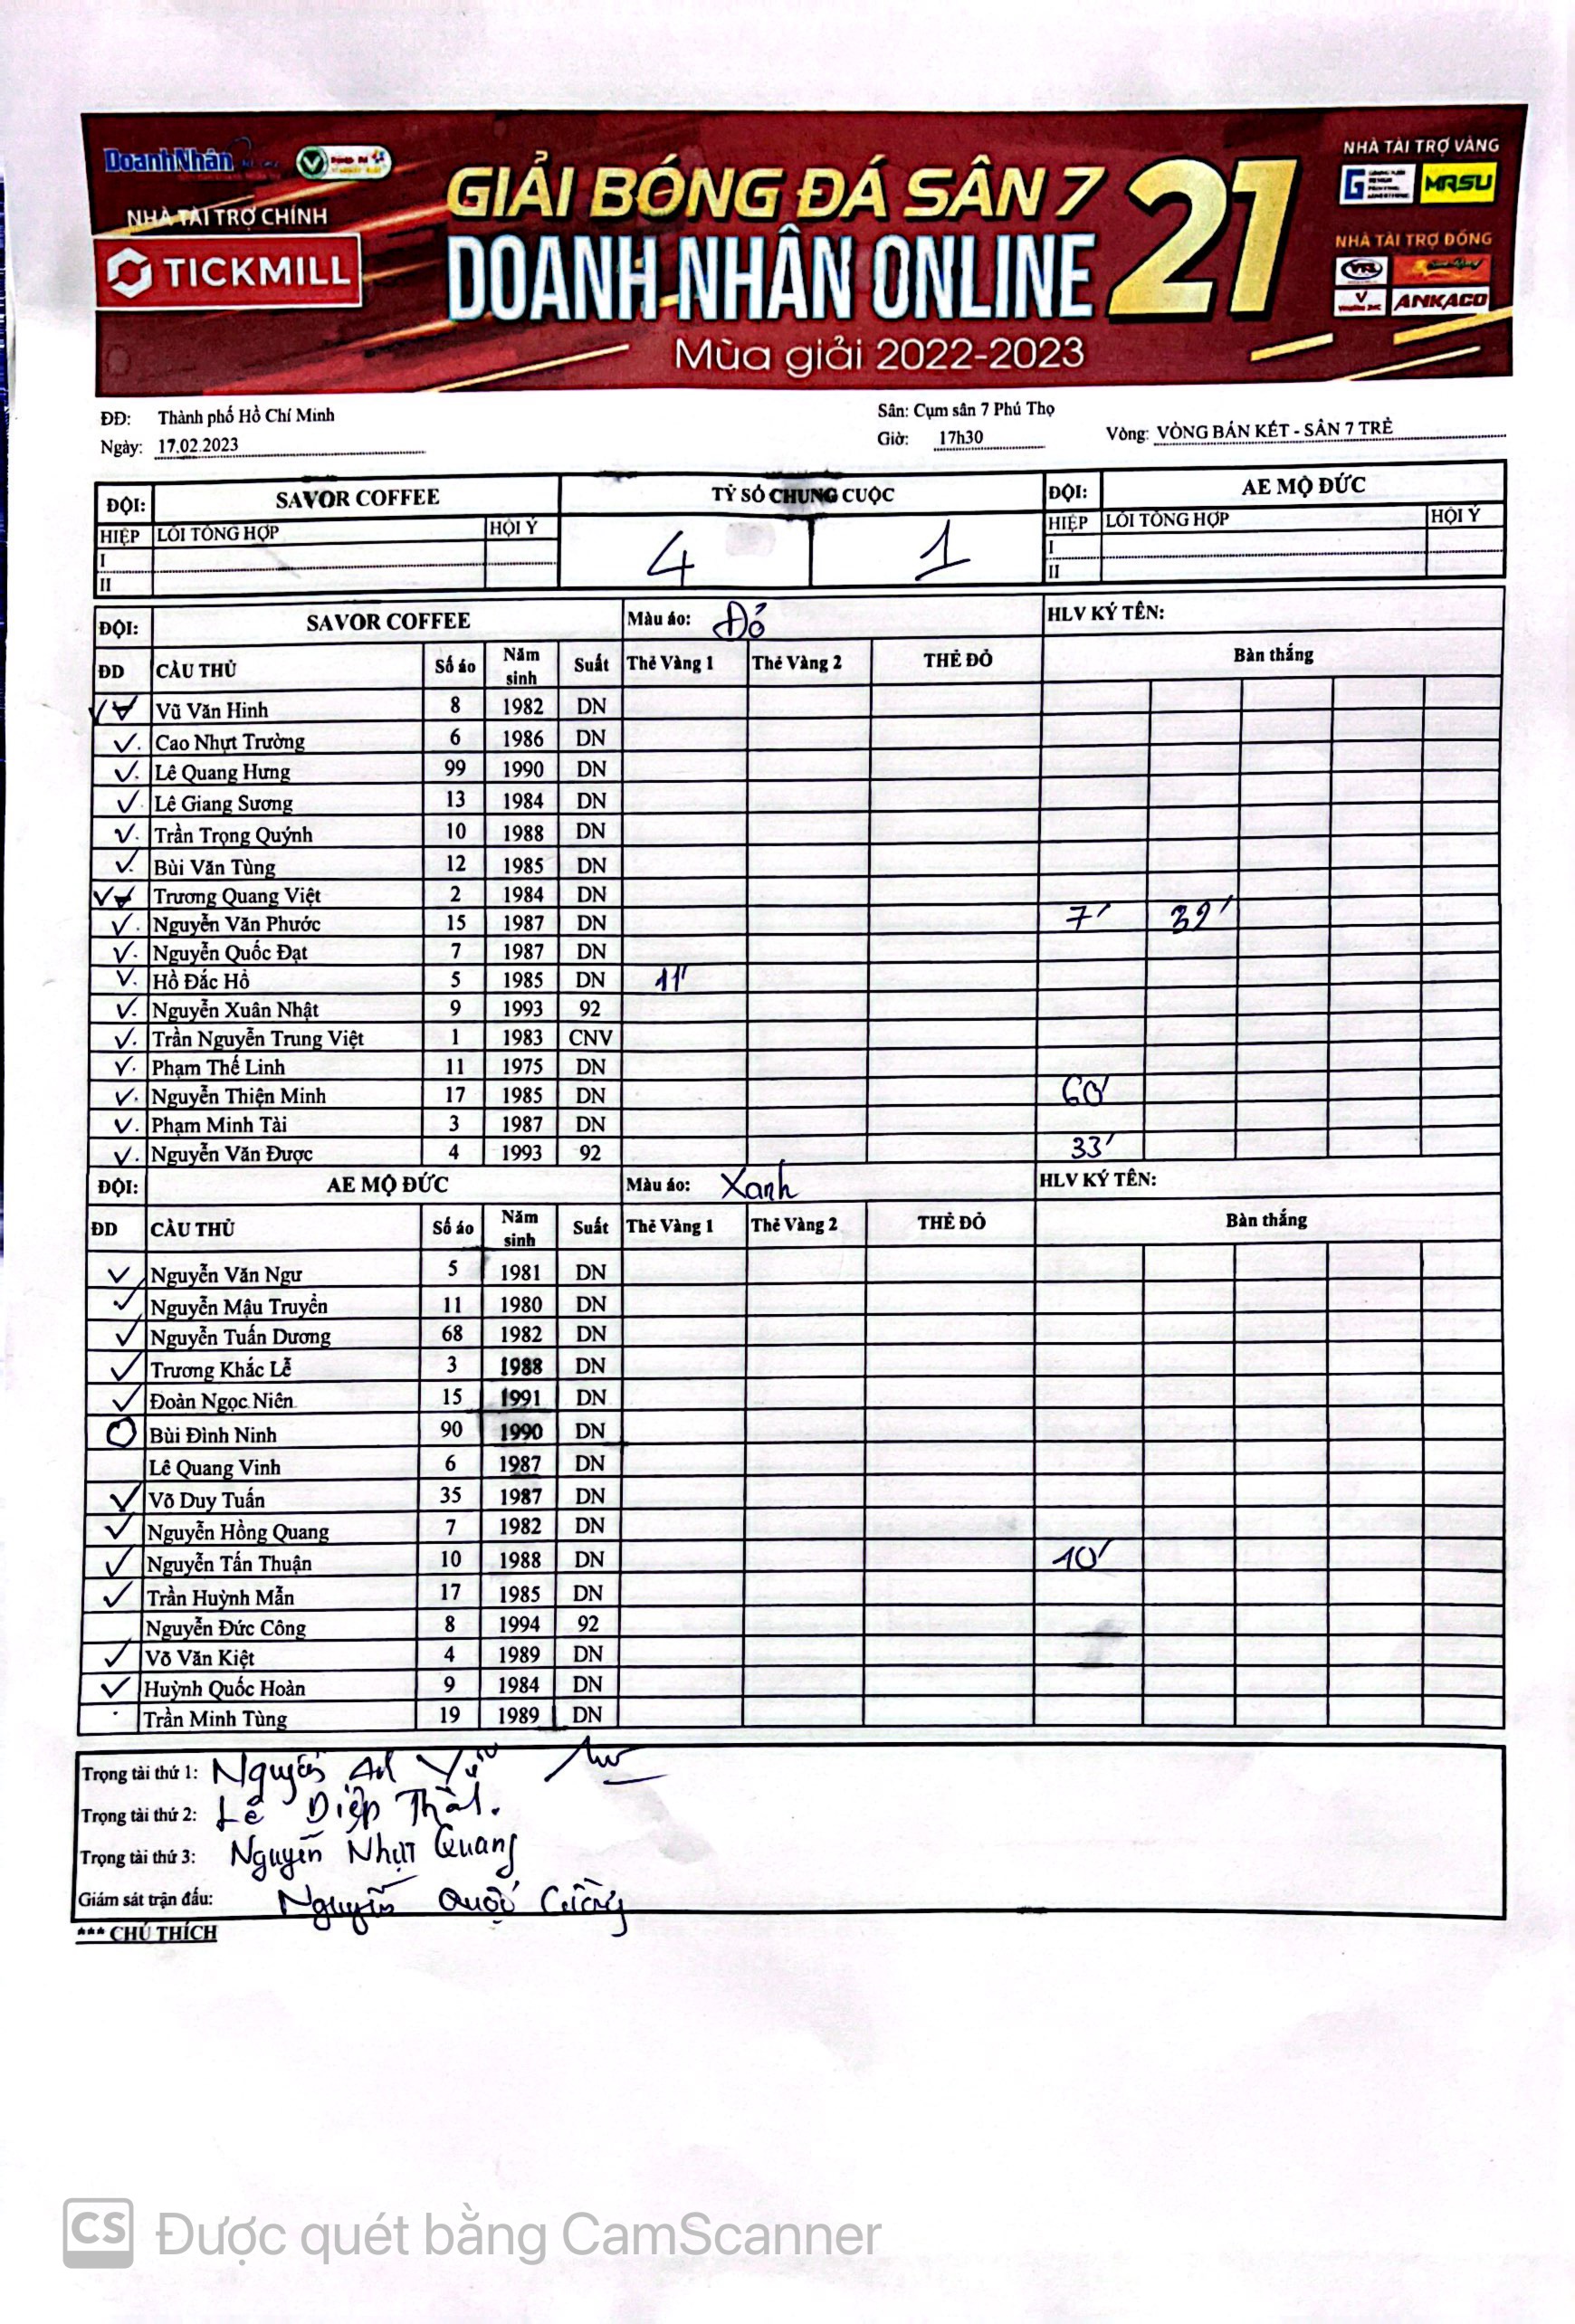 DoanhNhân
NHÀ TÀI TRỢ CHÍNH
TICKMILL
GIẢI BÓNG ĐÁ SÂN 7
DOANH NHÂN ONLINE
21
Mùa giải 2022-2023
NHÀ TÀI TRỢ VÀNG
MRSU
NHÀ TÀI TRỢ ĐỒNG
ANKACO
ĐĐ: Thành phố Hồ Chí Minh Sân: Cụm sân 7 Phú Thọ
Ngày: 17.02.2023 Giờ: 17h30 Vòng: VÒNG BÁN KẾT - SÂN 7 TRẺ
ĐỘI: SAVOR COFFEE TỶ SỐ CHUNG CUỘC ĐỘI: AE MỘ ĐỨC
HIỆP LỖI TỔNG HỢP HỘI Ý 4 1 HIỆP LỖI TỔNG HỢP HỘI Ý
I I
II II
ĐỘI: SAVOR COFFEE Màu áo: Đỏ HLV KÝ TÊN:
ĐD CẦU THỦ Số áo Năm sinh Suất Thẻ Vàng 1 Thẻ Vàng 2 THẺ ĐỎ Bàn thắng
Vũ Văn Hinh 8 1982 DN
Cao Nhựt Trường 6 1986 DN
Lê Quang Hưng 99 1990 DN
Lê Giang Sương 13 1984 DN
Trần Trọng Quýnh 10 1988 DN
Bùi Văn Tùng 12 1985 DN
Trương Quang Việt 2 1984 DN
Nguyễn Văn Phước 15 1987 DN 7' 39'
Nguyễn Quốc Đạt 7 1987 DN
Hồ Đắc Hồ 5 1985 DN 11'
Nguyễn Xuân Nhật 9 1993 92
Trần Nguyễn Trung Việt 1 1983 CNV
Phạm Thế Linh 11 1975 DN
Nguyễn Thiện Minh 17 1985 DN 60'
Phạm Minh Tài 3 1987 DN
Nguyễn Văn Được 4 1993 92 33'
ĐỘI: AE MỘ ĐỨC Màu áo: Xanh HLV KÝ TÊN:
ĐD CẦU THỦ Số áo Năm sinh Suất Thẻ Vàng 1 Thẻ Vàng 2 THẺ ĐỎ Bàn thắng
Nguyễn Văn Ngư 5 1981 DN
Nguyễn Mậu Truyền 11 1980 DN
Nguyễn Tuấn Dương 68 1982 DN
Trương Khắc Lễ 3 1988 DN
Đoàn Ngọc Niên 15 1991 DN
Bùi Đình Ninh 90 1990 DN
Lê Quang Vinh 6 1987 DN
Võ Duy Tuấn 35 1987 DN
Nguyễn Hồng Quang 7 1982 DN
Nguyễn Tấn Thuận 10 1988 DN 10'
Trần Huỳnh Mẫn 17 1985 DN
Nguyễn Đức Công 8 1994 92
Võ Văn Kiệt 4 1989 DN
Huỳnh Quốc Hoàn 9 1984 DN
Trần Minh Tùng 19 1989 DN
Trọng tài thứ 1: Nguyễn
Trọng tài thứ 2: Lê Diệp
Trọng tài thứ 3: Nguyễn Nhựt Quang
Giám sát trận đấu: Nguyễn Quốc Cường
*** CHÚ THÍCH
CS Được quét bằng CamScanner